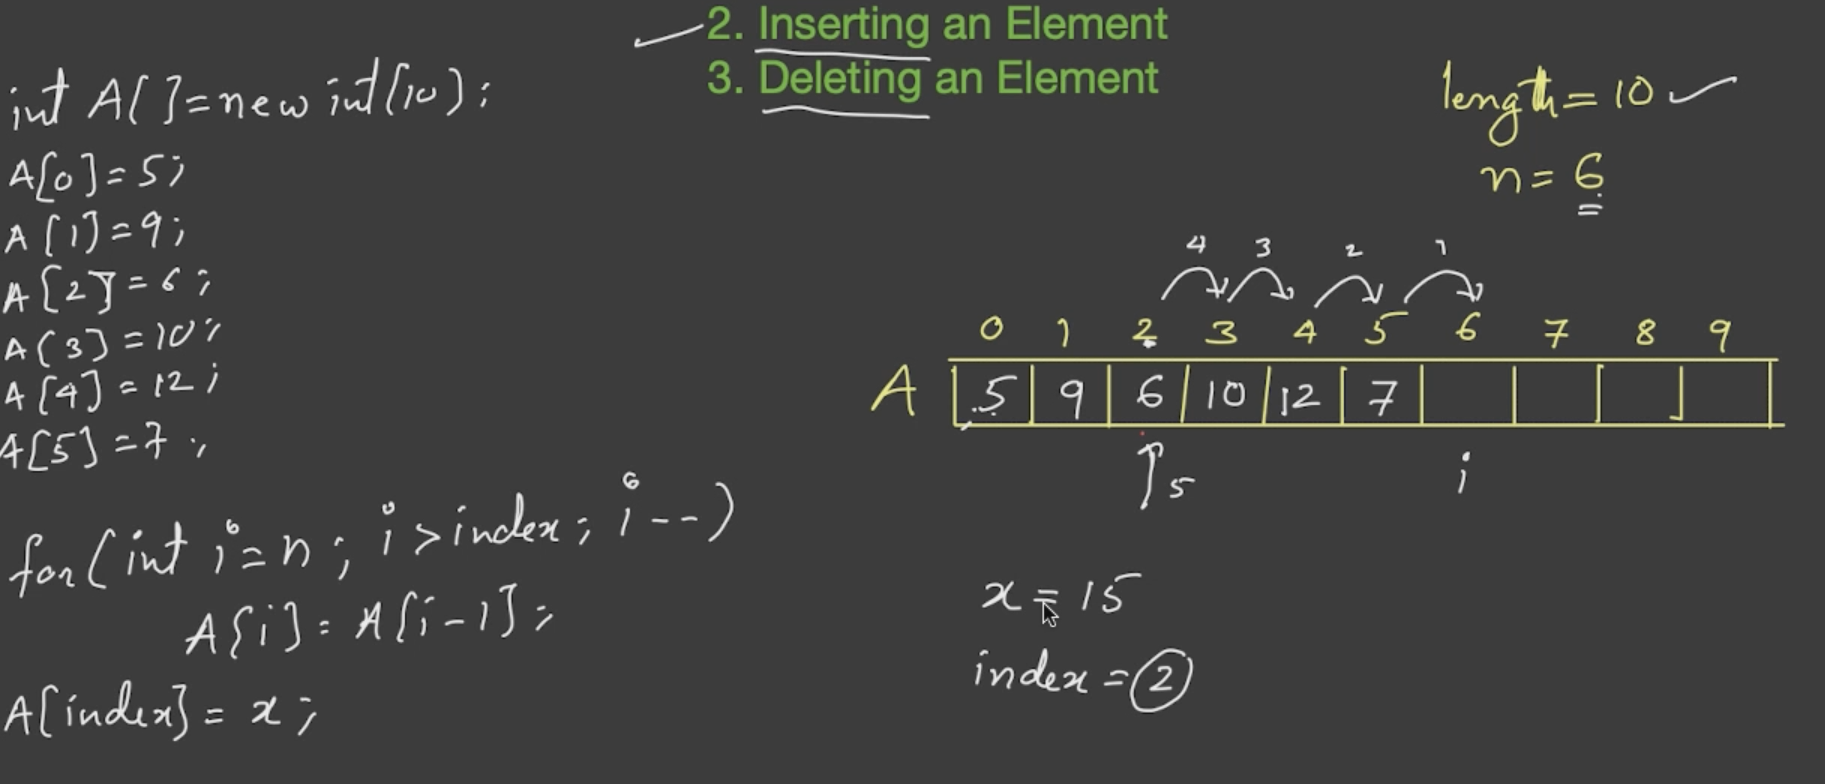 2. Inserting an Element
3. Deleting an Element
int A[]=new int[10];
A[0]=5;
A[1]=9;
A[2]=6;
A[3]=10;
A[4]=12;
A[5]=7;
for(int i=n; i>index; i--)
6 6
A[i]=A[i-1];
A[index]=x;
length=10
n=6
4 3 2 1
0 1 2 3 4 5 6 7 8 9
A 5 9 6 10 12 7
5 i
x=15
index=2